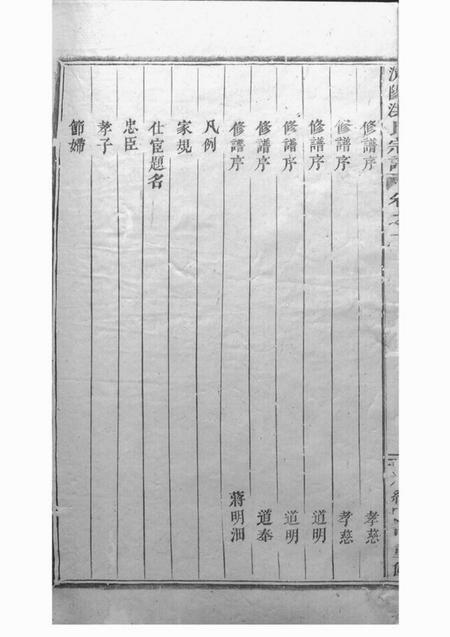 修譜序 孝慈
修譜序 孝慈
修譜序 道明
修譜序 道明
修譜序 道奉
修譜序 蔣明沺
凡例
家規
仕宦題名
忠臣
孝子
節婦